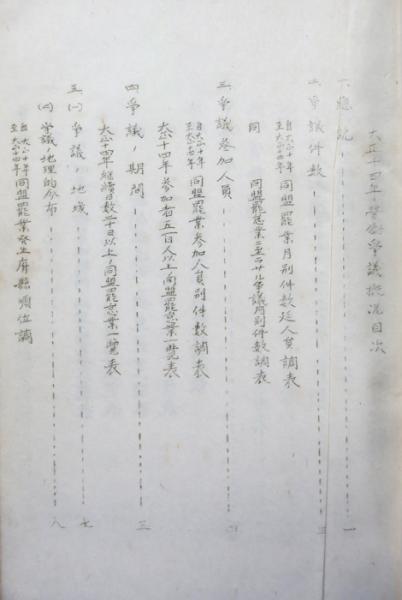 大正十四年労働争議概況目次
一、総説 一
二、争議件数 三
自大正十年至大正十四年 同盟罷業月別件数延人員調表
同 同盟罷怠業ニ至ラザル争議月別件数調表
三、争議参加人員
自大正十年至大正十四年 同盟罷業参加人員別件数調表
大正十四年参加者五百人以上同盟罷怠業一覧表
四、争議ノ期間 三
大正十四年継続日数二十日以上ノ同盟罷怠業一覧表
五、(一)争議ノ地域 七
(二)争議ノ地理的分布 八
自大正十年至大正十四年 同盟罷業発生府県順位調